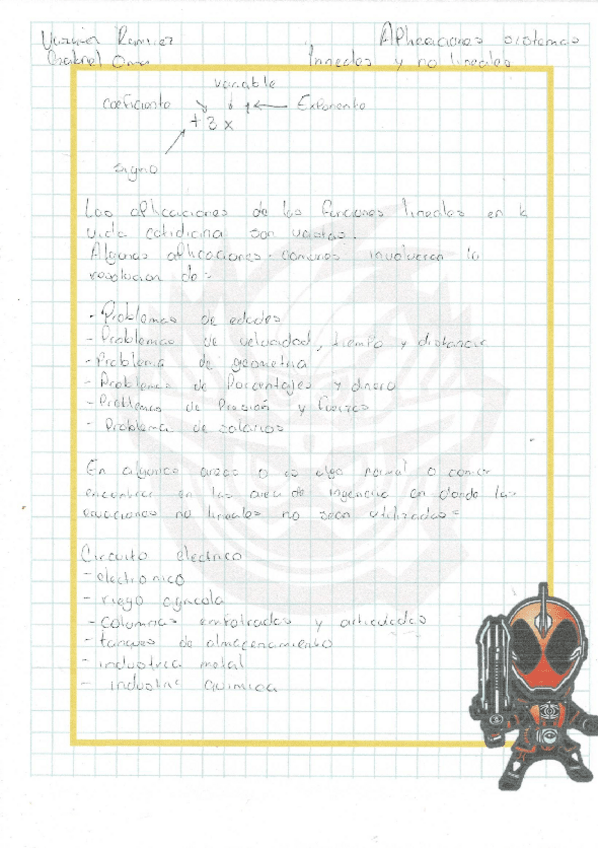 Ramirez Aplicaciones sistemas
lineales y no lineales
variable
coeficiente Exponente
+ 3 x
signo
Las aplicaciones de las funciones lineales en la
vida cotidiana son vastas.
Algunas aplicaciones comunes involucran la
resolucion de:
- Problemas de edades
- Problemas de velocidad, tiempo y distancia
- Problema de geometria
- Problemas de Porcentajes y dinero
- Problemas de Presión y fuerzas
- Problema de salarios
En algunas areas o es algo normal o comun
encontrar en las area de ingenieria en donde las
ecuaciones no lineales no sean utilizadas=
Circuito electrico
- electronico
- riego agricola
- columnas empotradas y articuladas
- tanques de almacenamiento
- industria metal
- industria quimica